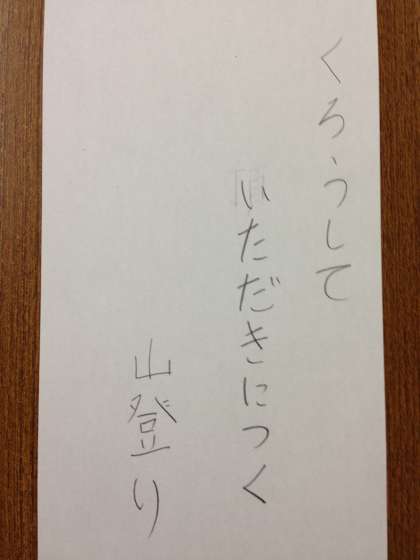 くろうして
いただきにつく
山登り